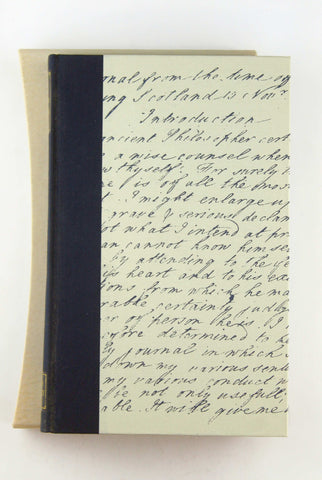 onal from the time
ing Scotland 15 Novr.
Introduction
ancient Philosopher cert
a wise counsel when
w thyself. For surely
is of all the mos
I might enlarge
grave & serious declam
ot what I intend at pr
an cannot know himse
by attending to the
is heart and to his ex
ions from which he ma
rable certainty judge
er of person he is. I
efore determined to
journal in which
down my various sent
my various conduct w
be not only useful
able. It will give me